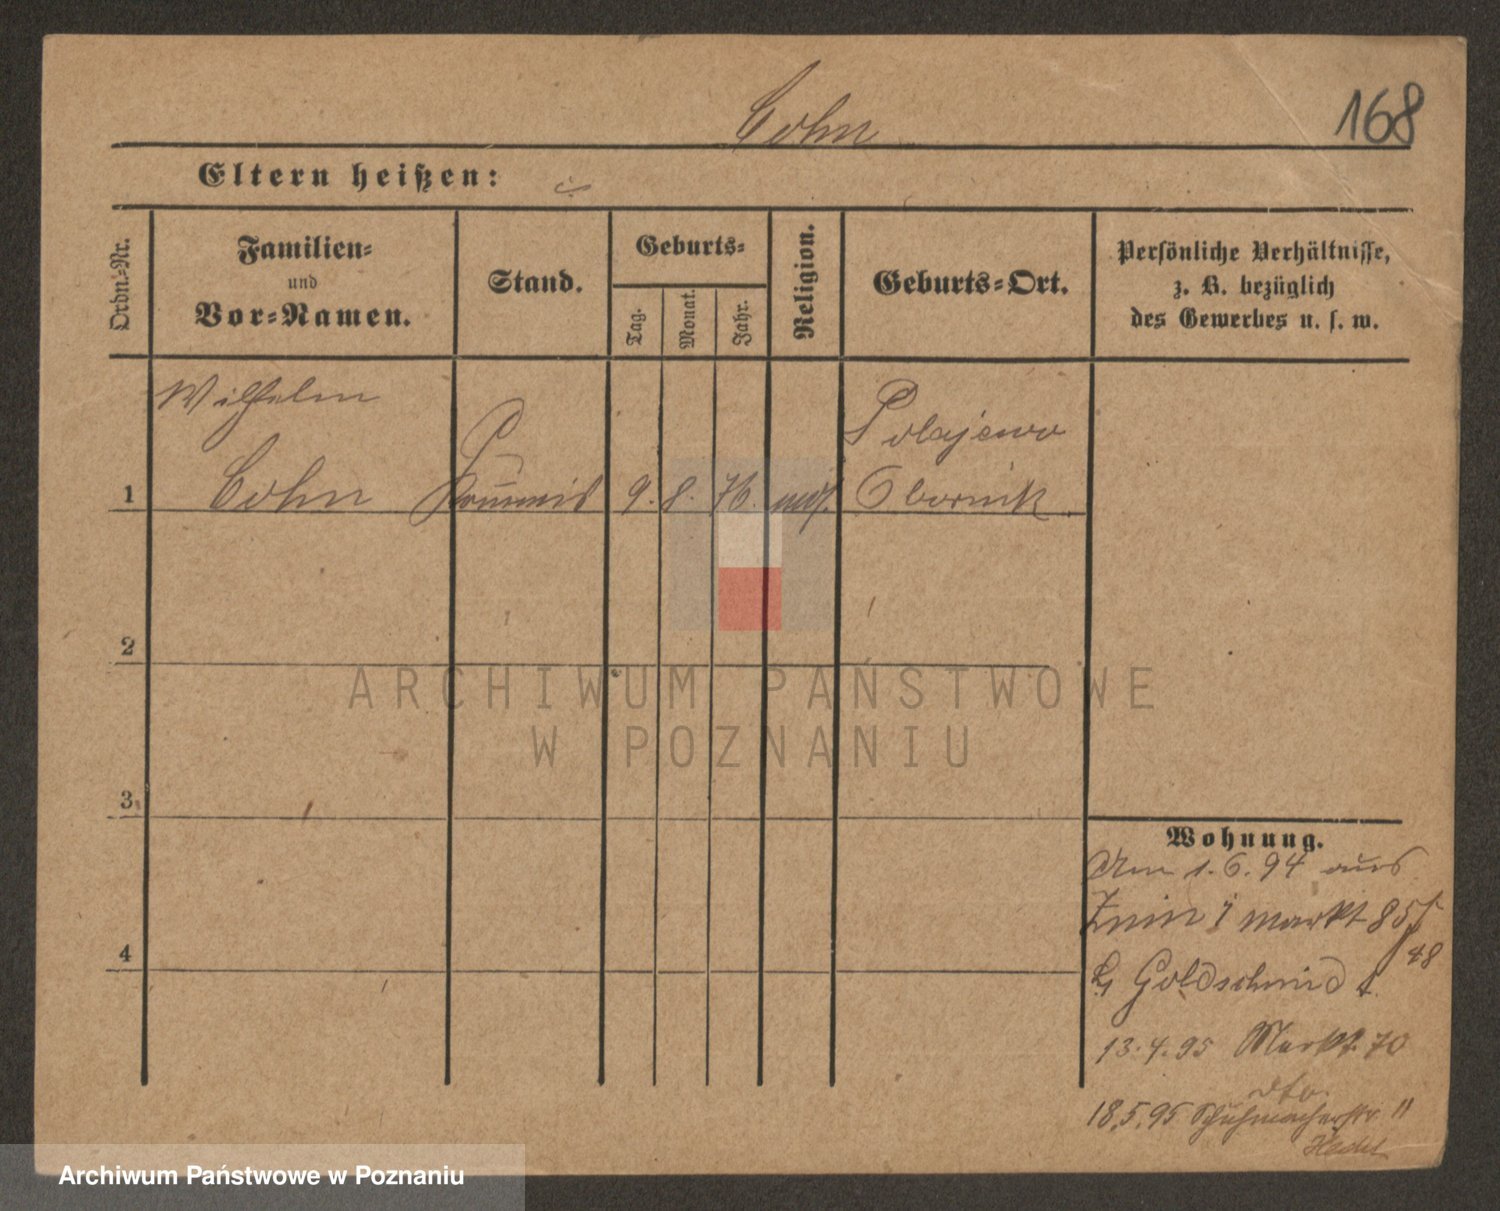 Cohn
168
Eltern heißen:
Ordn.-Nr.
Familien-
und
Vor-Namen.
Stand.
Geburts-
Tag.
Monat.
Jahr.
Religion.
Geburts-Ort.
Persönliche Verhältnisse,
z. B. bezüglich
des Gewerbes u. s. w.
Wilhelm
Polajewo
1 Cohn Kommis 9. 8. 76. mos. Obornik
2
ARCHIWUM PAŃSTWOWE
W POZNANIU
3.
4
Wohnung.
Am 1. 6. 94 aus
Znin Markt 85
48
Goldschmidt
13. 4. 95 Markt 70
dto.
18. 5. 95 Schuhmacherstr. 11
Archiwum Państwowe w Poznaniu